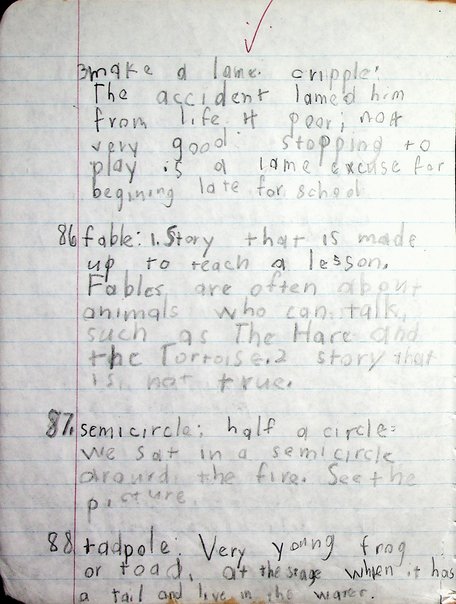 3make a lame. cripple:
The accident lamed him
from life 4 poor; not
very good: stopping to
play is a lame excuse for
begining late for school
86 fable: 1. Story that is made
up to teach a lesson.
Fables are often about
animals who can talk,
such as The Hare and
the Tortoise. 2 story that
is not true.
87. semicircle; half a circle:
We sat in a semicircle
around the fire. See the
picture.
88 tadpole: Very young frog
or toad, at the stage when it has
a tail and live in the water.